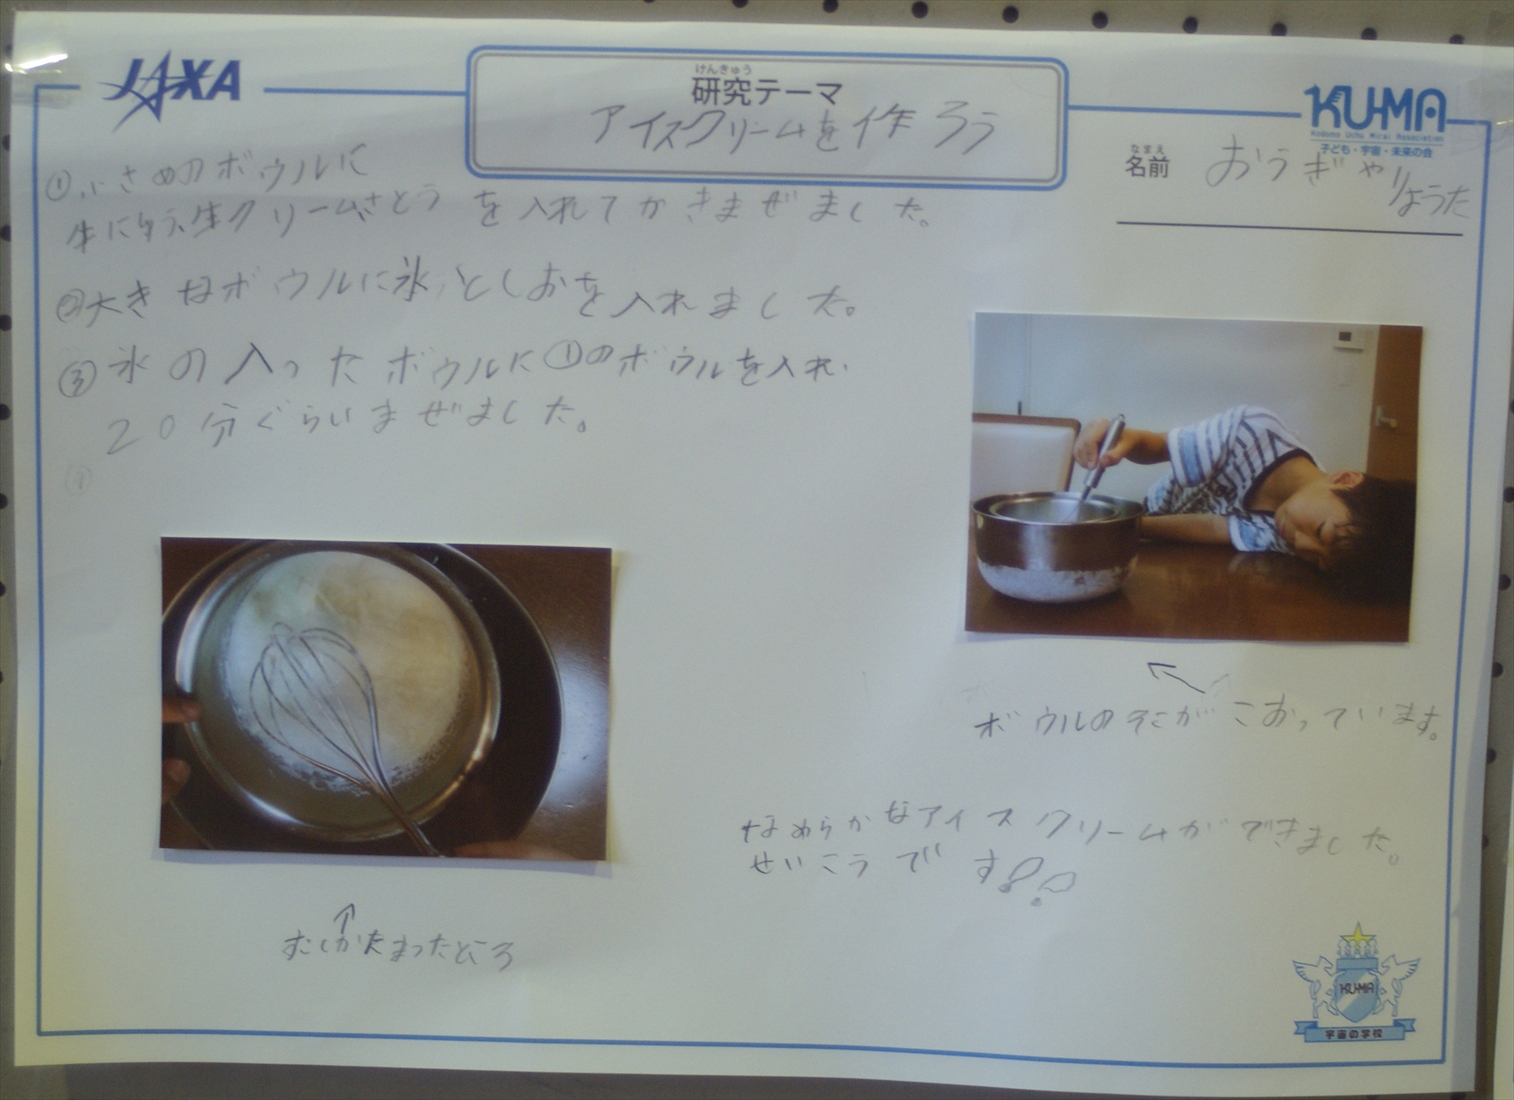 JAXA
けんきゅう
研究テーマ
アイスクリームを作ろう
KU-MA
Kodomo Uchu Mirai Association
子ども・宇宙・未来の会
なまえ
名前 おうぎやりょうた
①小さめのボウルに
牛にゅう、生クリーム、さとうを入れてかきまぜました。
②大きなボウルに氷、としおを入れました。
③氷の入ったボウルに①のボウルを入れ、
20分ぐらいまぜました。
④
ボウルのそこがこおっています。
なめらかなアイスクリームができました。
せいこうです!!
↑
すこしかたまったところ
KU-MA
宇宙の学校